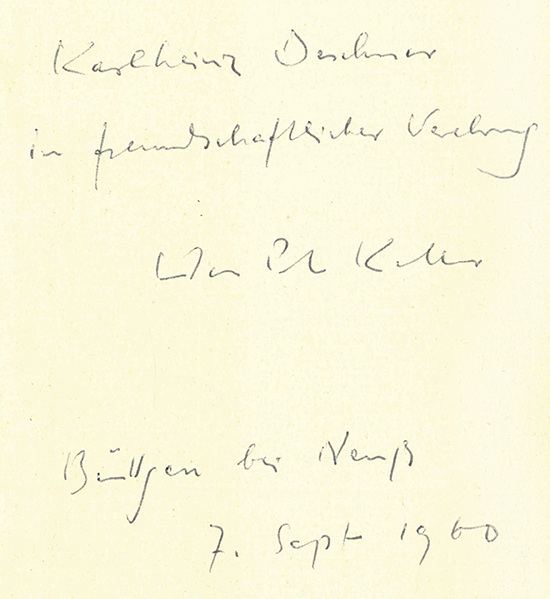 Karlheinz Deschner
in freundschaftlicher Verehrung
Hans P. Keller
Büttgen bei Neuß
7. Sept 1960